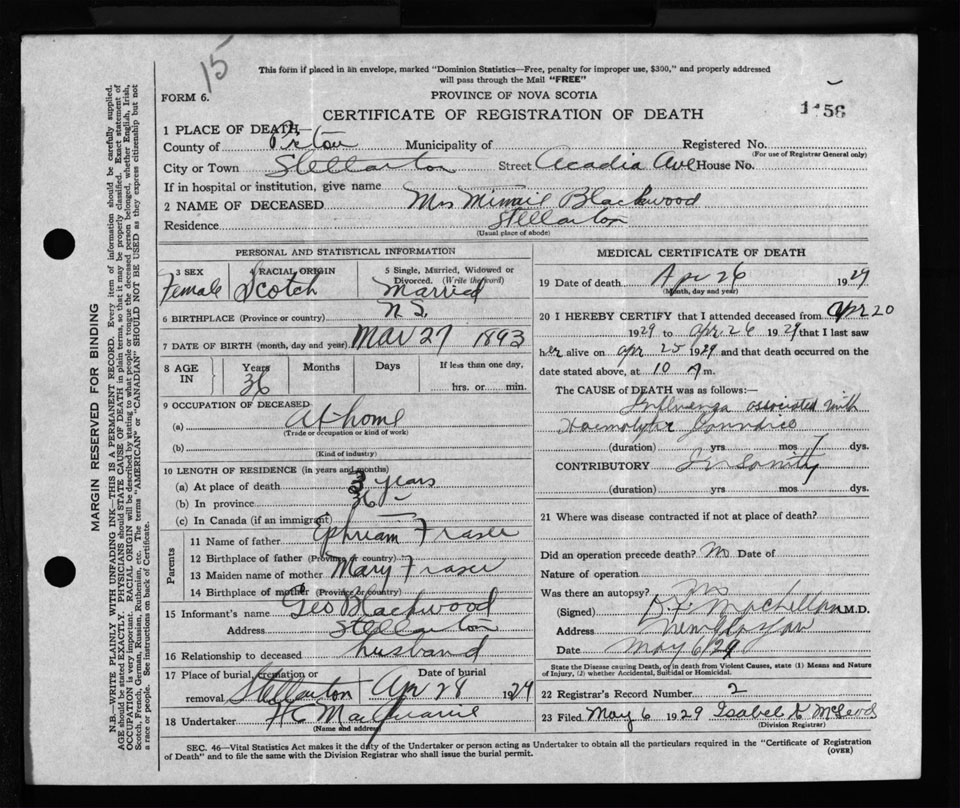 15
This form if placed in an envelope, marked "Dominion Statistics—Free, penalty for improper use, $300," and properly addressed
will pass through the Mail "FREE"
FORM 6.
PROVINCE OF NOVA SCOTIA
CERTIFICATE OF REGISTRATION OF DEATH
1 PLACE OF DEATH—
County of Pictou Municipality of Registered No.
(For use of Registrar General only)
City or Town Stellarton Street Acadia Ave House No.
If in hospital or institution, give name
2 NAME OF DECEASED Mrs Blackwood
Residence Stellarton
(Usual place of abode)
PERSONAL AND STATISTICAL INFORMATION
3 SEX Female
4 RACIAL ORIGIN Scotch
5 Single, Married, Widowed or
Divorced. (Write the word)
Married
6 BIRTHPLACE (Province or country) N.S.
7 DATE OF BIRTH (month, day and year) Mar 27 1893
8 AGE IN Years 36 Months Days If less than one day,
hrs. or min.
9 OCCUPATION OF DECEASED
(a) At home
(Trade or occupation or kind of work)
(b)
(Kind of industry)
10 LENGTH OF RESIDENCE (in years and months)
(a) At place of death 3 years
(b) In province 36
(c) In Canada (if an immigrant)
Parents
11 Name of father Ephriam Fraser
12 Birthplace of father (Province or country)
13 Maiden name of mother Mary Fraser
14 Birthplace of mother (Province or country)
15 Informant's name Geo Blackwood
Address Stellarton
16 Relationship to deceased husband
17 Place of burial, cremation or Date of burial
removal Stellarton Apr 28 1929
18 Undertaker
(Name and address)
MEDICAL CERTIFICATE OF DEATH
19 Date of death Apr 26 1929
(Month, day and year)
20 I HEREBY CERTIFY that I attended deceased from Apr 20
1929 to Apr 26 1929 that I last saw
her alive on Apr 25 1929 and that death occurred on the
date stated above, at 10 A m.
The CAUSE of DEATH was as follows:—
Influenza associated with
Jaundice
(duration) yrs mos 7 dys.
CONTRIBUTORY Insanity
(duration) yrs mos dys.
21 Where was disease contracted if not at place of death?
Did an operation precede death? No Date of
Nature of operation
Was there an autopsy? No
(Signed) M.D.
Address New Glasgow
Date May 6/29
State the Disease causing Death, or in death from Violent Causes, state (1) Means and Nature
of Injury, (2) whether Accidental, Suicidal or Homicidal.
22 Registrar's Record Number 2
23 Filed May 6 1929 Isabel K McLeod
(Division Registrar)
SEC. 46—Vital Statistics Act makes it the duty of the Undertaker or person acting as Undertaker to obtain all the particulars required in the "Certificate of Registration
of Death" and to file the same with the Division Registrar who shall issue the burial permit.
(OVER)
MARGIN RESERVED FOR BINDING
N.B.—WRITE PLAINLY WITH UNFADING INK—THIS IS A PERMANENT RECORD. Every item of information should be carefully supplied.
AGE should be stated EXACTLY. PHYSICIANS should STATE CAUSE OF DEATH in plain terms, so that it may be properly classified. Exact statement of
OCCUPATION is very important. RACIAL ORIGIN will be described by stating to what people or tongue the deceased person belonged, whether English, Irish,
Scotch, French, German, Russian, Ruthenian, etc. The terms "AMERICAN" or "CANADIAN" SHOULD NOT BE USED as they express citizenship but not
a race or people. See instructions on back of Certificate.